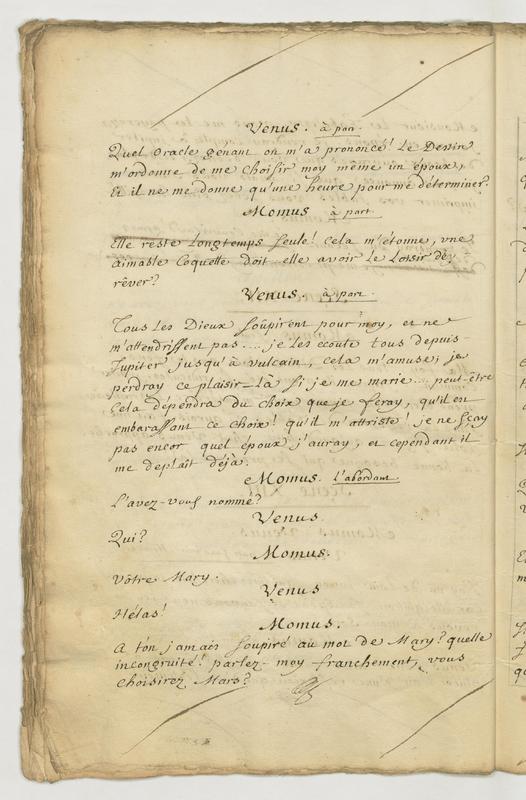 Venus. à part.
Quel Oracle gênant on m'a prononcé! Le Destin
m'ordonne de me choisir moy même un époux,
Et il ne me donne qu'une heure pour me déterminer?
Momus à part.
Elle reste longtemps seule! cela m'étonne, une
aimable Coquette doit-elle avoir le loisir de
rêver?
Venus. à part.
Tous les Dieux soupirent pour moy, et ne
m'attendrissent pas.... je les écoute tous depuis
Jupiter jusqu'à Vulcain, cela m'amuse; je
perdray ce plaisir-là si je me marie.... peut-être
cela dépendra du choix que je feray, qu'il est
embarassant ce choix! qu'il m'attriste! je ne sçay
pas encor quel époux j'auray, et cependant il
me deplaît déjà.
Momus. l'abordant.
L'avez-vous nommé?
Venus.
Qui?
Momus.
Vôtre Mary.
Venus
Hélas!
Momus.
A t'on jamais soupiré au mot de Mary? quelle
incongruité! parlez-moy franchement, vous
choisirez Mars?